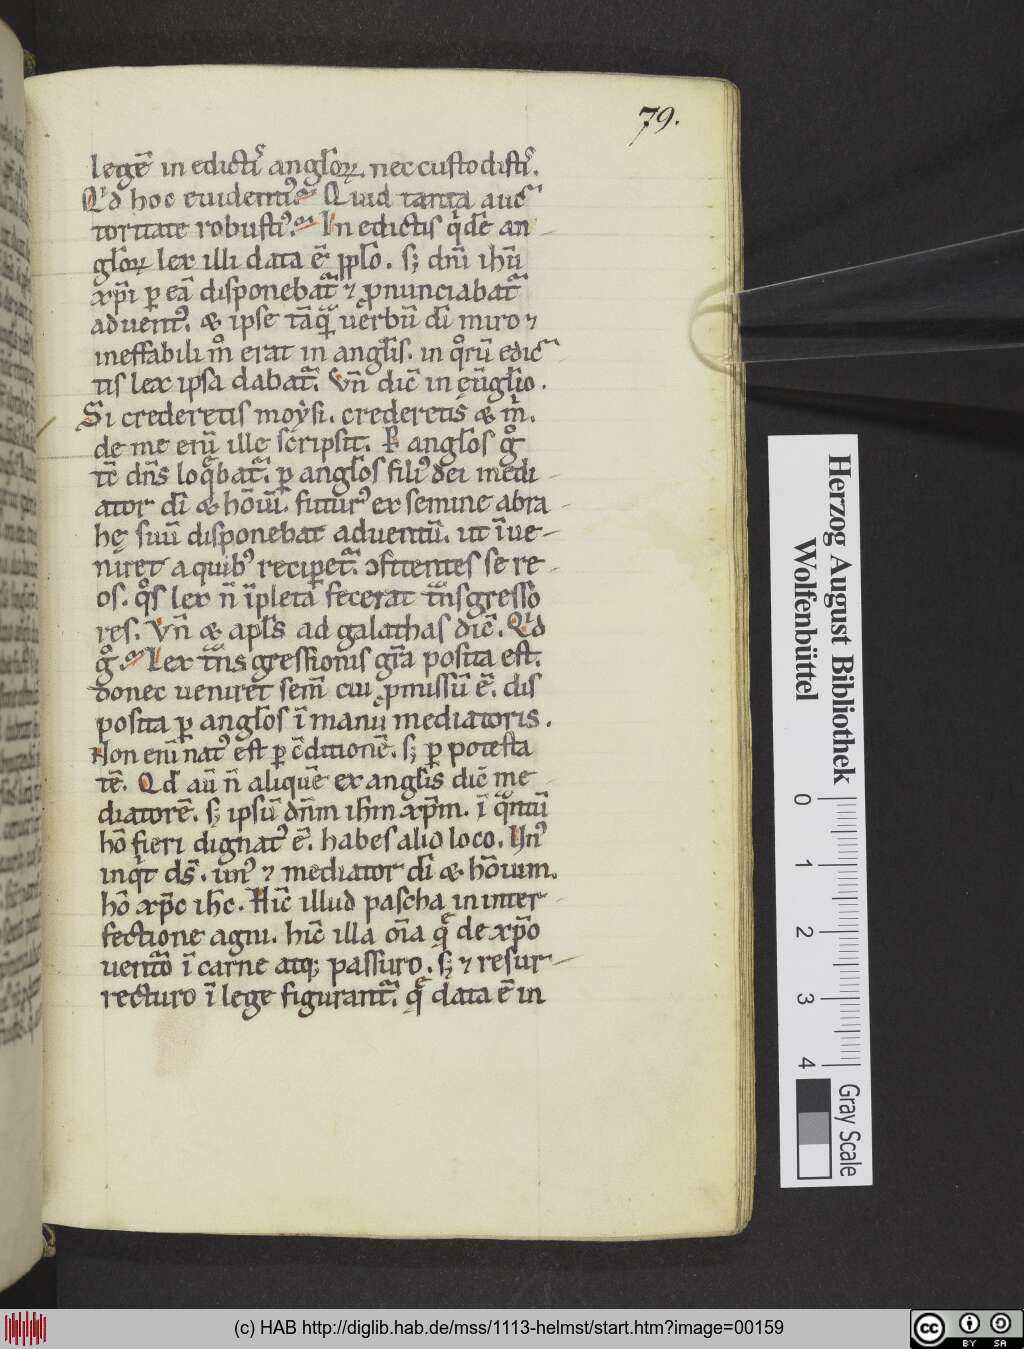 79.
legē in edictᷓ angl̄oꝝ. nec custodistᷓ.
Qͥd hoc euidentiꝰ. Quid tanta auc
toritate robustiꝰ. In edictis qͥdē an
gl̄oꝝ lex illi data ē ꝓpl̄o. sꝫ dn̄i ih̄u
xp̄i ꝑ eā disponebatᷓ ⁊ ꝓnunciabatᷓ
aduentꝰ. & ipse tāqᷓ uerbū dī miro ⁊
ineffabili mͦ erat in angl̄is. in qͦrū edic
tis lex ipsa dabatᷓ. Vn̄ dic̄ in eūgl̄io.
Si crederetis moẏsi. crederetis & mͥ.
de me enī ille scripsit. ꝑ angl̄os gͦ
tē dn̄s loqͤbatᷓ. ꝑ angl̄os filiꝰ dei medi
ator dī & hōiū. futurꝰ ex semine abra
hę suū disponebat aduentū. ut īue
niret a quibꝰ reciperetᷓ. ↄfitentes se re
os. qͦs lex n̄ īpleta fecerat tᷓnsgresso
res. Vn̄ & apl̄s ad galathas dic̄. Qͥd
gͦ. Lex tᷓnsgressionis gr̄a posita est.
donec ueniret sem̄ cui ꝓmissū ē. dis
posita ꝑ angl̄os ī manu mediatoris.
Non enī natꝰ est ꝑ c̄ditionē. sꝫ ꝑ potesta
tē. Qd̄ aū n̄ aliquē ex angl̄is dic̄ me
diatorē. sꝫ ipsū dn̄m ih̄m xp̄m. ī qᷓntū
hō fieri dignatꝰ ē. habes alio loco. Vnꝰ
inqͥt ds̄. unꝰ ⁊ mediator dī & hōium.
hō xp̄c ih̄c. Hīc illud pascha in inter
fectione agni. hīc illa oīa qͤ de xp̄o
uentᷓo ī carne atqꝫ passuro. sꝫ ⁊ resur
recturo ī lege figurantᷓ. qͤ data ē in
Herzog August Bibliothek
Wolfenbüttel
0
1
2
3
4
Gray Scale
(c) HAB http://diglib.hab.de/mss/1113-helmst/start.htm?image=00159
cc
BY SA